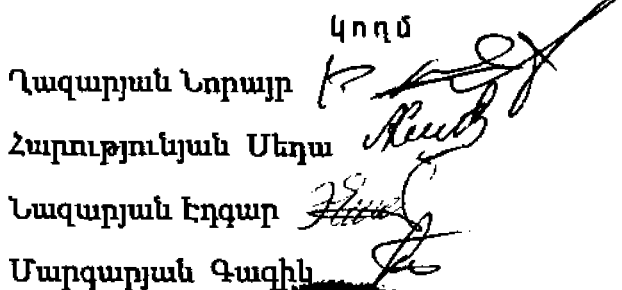 կողմ
Ղազարյան Նորայր
Հարությունյան Սեդա
Նազարյան Էդգար
Մարգարյան Գագիկ